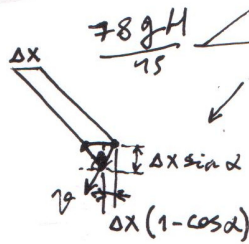 78gH
15
Δx
Δx sin α
v
Δx(1-cos α)